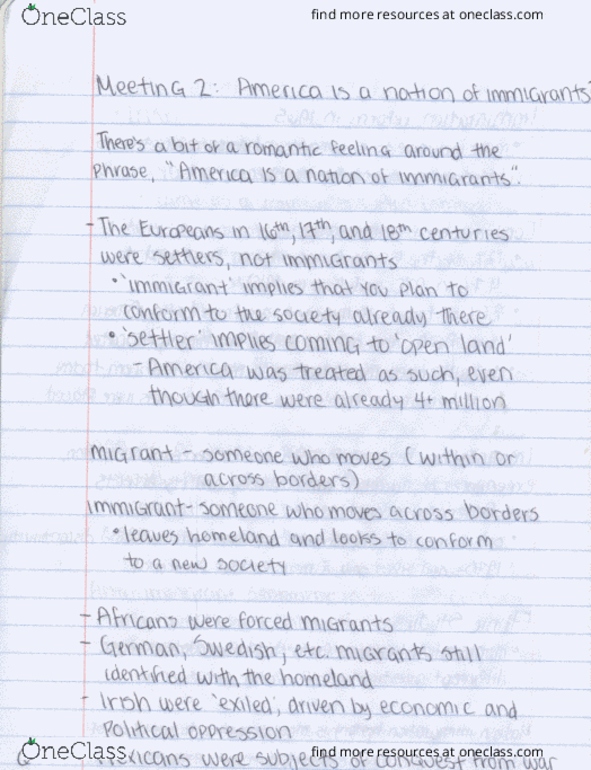 OneClass
find more resources at oneclass.com
Meeting 2: America is a nation of immigrants
There's a bit of a romantic feeling around the
phrase, "America is a nation of immigrants".
- The Europeans in 16th, 17th, and 18th centuries
were settlers, not immigrants
• 'immigrant' implies that you plan to
conform to the society already there
• 'settler' implies coming to 'open land'
- America was treated as such, even
though there were already 4+ million
migrant - someone who moves (within or
across borders)
immigrant - someone who moves across borders
• leaves homeland and looks to conform
to a new society
- Africans were forced migrants
- German, Swedish, etc. migrants still
identified with the homeland
- Irish were 'exiled', driven by economic and
political oppression
Mexicans were subjects of conquest from war
OneClass
find more resources at oneclass.com